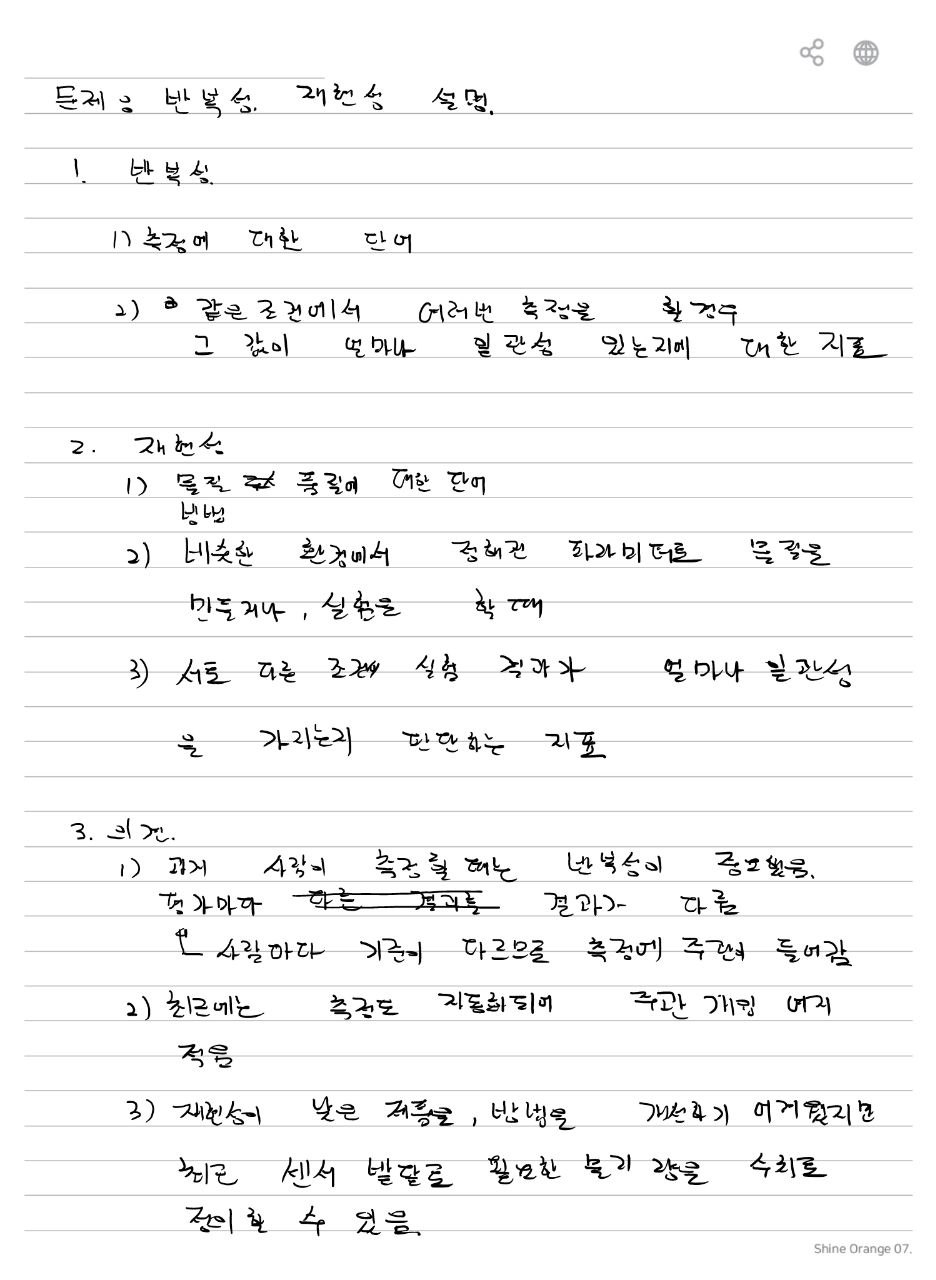 문제 : 반복성. 재현성 설명.
1. 반복성.
1) 측정에 대한 단어
2) 같은 조건에서 여러번 측정을 할 경우
그 값이 얼마나 일관성 있는지에 대한 지표
2. 재현성
1) 물질 품질에 대한 단어
방법
2) 비슷한 환경에서 정해진 파라미터로 물질을
만들거나, 실험을 할 때
3) 서로 다른 조건에 실험 결과가 얼마나 일관성
을 가지는지 판단하는 지표
3. 의견.
1) 과거 사람이 측정할 때는 반복성이 중요했음.
평가마다 다른 결과를 결과가 다름
사람마다 기준이 다르므로 측정에 주관이 들어감
2) 최근에는 측정도 자동화되어 주관 개입 여지
적음
3) 재현성이 낮은 제품을, 방법을 개선하기 어려웠지만
최근 센서 발달로 필요한 물리 량을 수치로
정의할 수 있음.
Shine Orange 07.